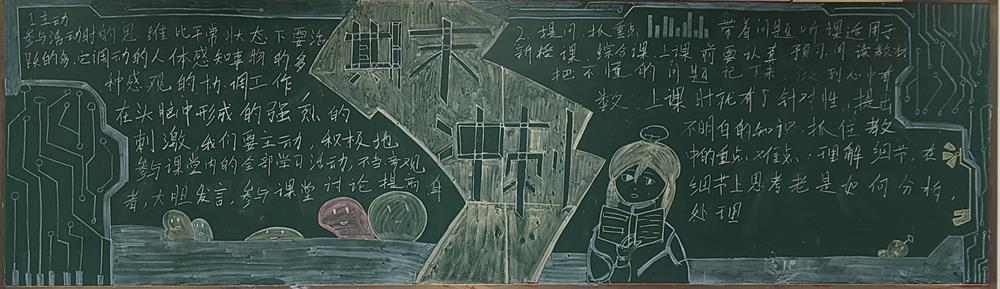 1.主动
参与活动时的思维比平常状态下要活
跃的多,它调动的人体感知事物的多
种感观的协调工作
在头脑中形成的强烈的
刺激,我们要主动,积极地
参与课堂内的全部学习活动,不当旁观
者,大胆发言,参与课堂讨论提前
2.提问、抓重点 带着问题听课适用于
新授课、综合课上课前要认真预习,阅读教材
把不懂的问题记下来,做到心中有
数,上课时就有了针对性,提出
不明白的知识,抓住教
中的重点,难点,理解细节,在
细节上思考老是如何分析,
处理